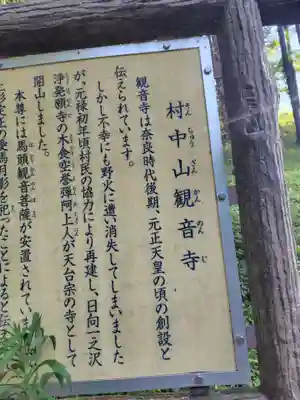 村中山観音寺
そんちゅうざんかんのんじ
観音寺は奈良時代後期、元正天皇の頃の創設と
伝えられています。
しかし不幸にも野火に遭い消失してしまいました
が、元禄初年頃村民の協力により再建し、日向一之沢
浄発願寺の木食空誉禅阿上人が天台宗の寺として
開山しました。
本尊には馬頭観音菩薩が安置されてい
の愛馬月影を祀ったことによると伝